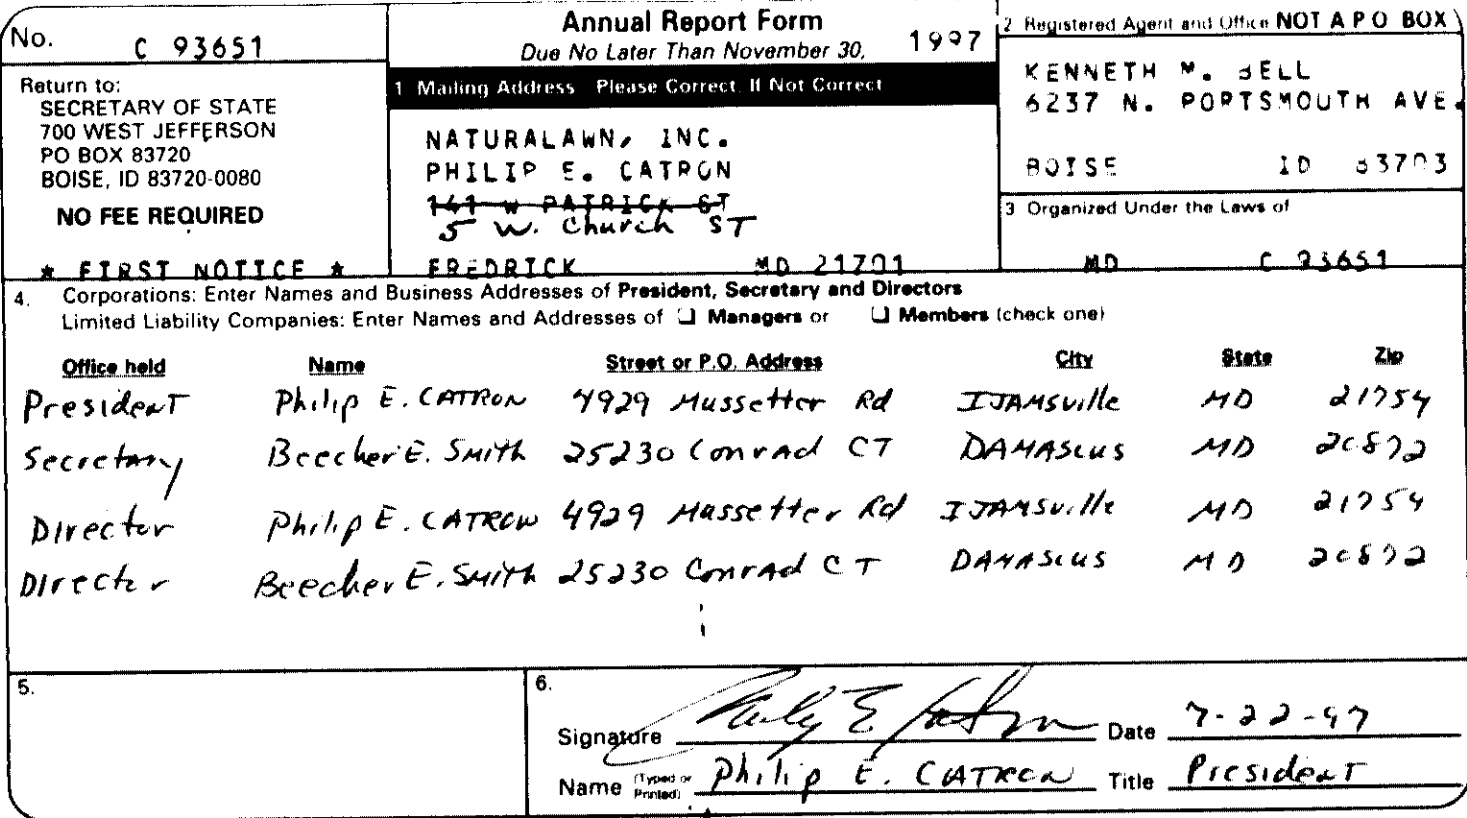 No. C 93651
Annual Report Form
Due No Later Than November 30, 1997
Return to:
SECRETARY OF STATE
700 WEST JEFFERSON
PO BOX 83720
BOISE, ID 83720-0080
NO FEE REQUIRED
* FIRST NOTICE *
1 Mailing Address Please Correct, If Not Correct
NATURALAWN, INC.
PHILIP E. CATRON
141 W PATRICK ST
5 W. Church ST
FREDRICK MD 21701
2 Registered Agent and Office NOT A P O BOX
KENNETH M. BELL
6237 N. PORTSMOUTH AVE.
BOISE ID 83703
3 Organized Under the Laws of
MD C 93651
4. Corporations: Enter Names and Business Addresses of President, Secretary and Directors
Limited Liability Companies: Enter Names and Addresses of ❑ Managers or ❑ Members (check one)
Office held Name Street or P.O. Address City State Zip
President Philip E. CATRON 4929 Mussetter Rd IJAMSville MD 21754
Secretary Beecher E. Smith 25230 Conrad CT DAMASCUS MD 20872
Director Philip E. CATRON 4929 Mussetter Rd IJAMSville MD 21754
Director Beecher E. Smith 25230 Conrad CT DAMASCUS MD 20872
5.
6.
Signature Philip E. Catron Date 7-22-97
Name (Typed or Printed) Philip E. CATRON Title President